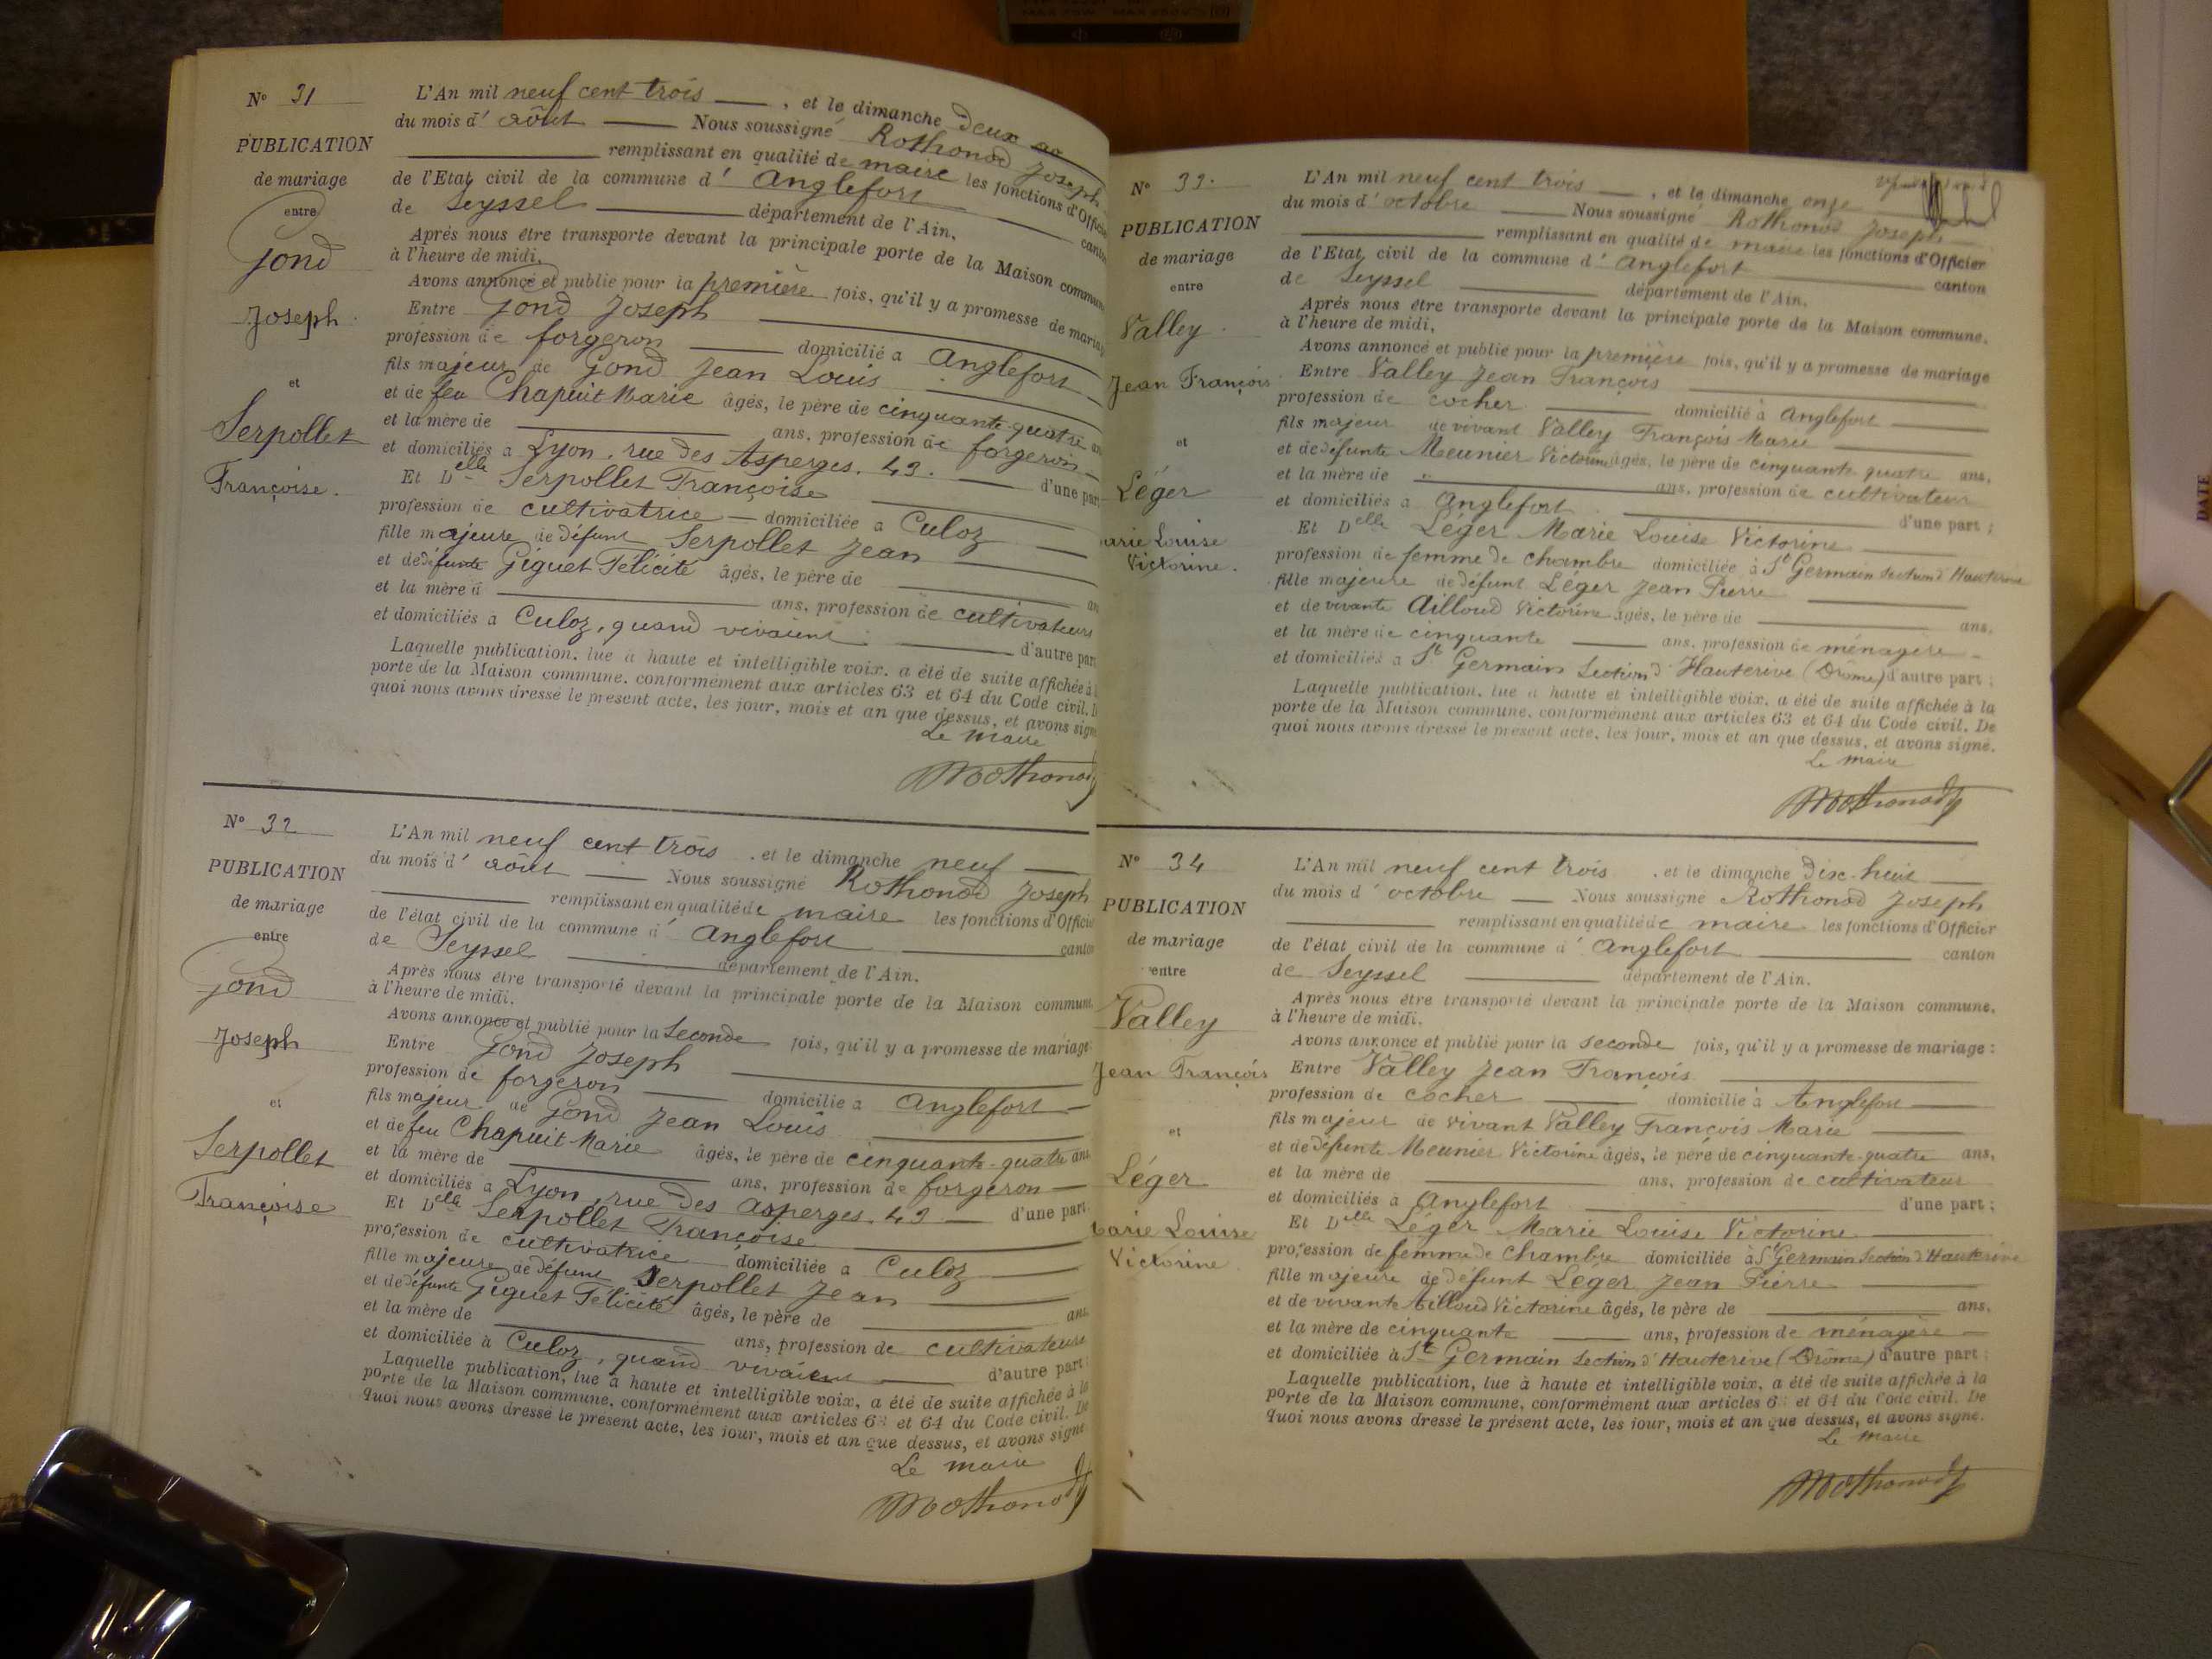 N° 31
PUBLICATION
de mariage
entre
Gond
Joseph
et
Serpollet
Françoise.
L'An mil neuf cent trois, et le dimanche deux
du mois d'août Nous soussigné Rothonod Joseph
remplissant en qualité de maire les fonctions d'Officie
de l'Etat civil de la commune d'Anglefort canton
de Seyssel département de l'Ain.
Après nous être transporté devant la principale porte de la Maison commune
à l'heure de midi.
Avons annoncé et publié pour la première fois, qu'il y a promesse de mariage
Entre Gond Joseph
profession de forgeron domicilié à Anglefort
fils majeur de Gond Jean Louis
et de feu Chapuit Marie âgés, le père de cinquante-quatre an
et la mère de ans, profession de forgeron
et domiciliés à Lyon, rue des Asperges. 43. d'une part
Et Delle Serpollet Françoise
profession de cultivatrice domiciliée à Culoz
fille majeure de défunt Serpollet Jean
et de défunte Giguet Félicité âgés, le père de an
et la mère d ans, profession de cultivateurs
et domiciliés à Culoz, quand vivaient d'autre part
Laquelle publication, lue à haute et intelligible voix, a été de suite affichée à l
porte de la Maison commune, conformément aux articles 63 et 64 du Code civil. D
quoi nous avons dressé le présent acte, les jour, mois et an que dessus, et avons sign
Le maire
Rothonod
N° 32
PUBLICATION
de mariage
entre
Gond
Joseph
et
Serpollet
Françoise
L'An mil neuf cent trois, et le dimanche neuf
du mois d'août Nous soussigné Rothonod Joseph
remplissant en qualité de maire les fonctions d'Officie
de l'état civil de la commune d'Anglefort canton
de Seyssel département de l'Ain.
Après nous être transporté devant la principale porte de la Maison commune
à l'heure de midi.
Avons annoncé et publié pour la seconde fois, qu'il y a promesse de mariage:
Entre Gond Joseph
profession de forgeron domicilié à Anglefort
fils majeur de Gond Jean Louis
et de feu Chapuit Marie âgés, le père de cinquante-quatre ans
et la mère de ans, profession de forgeron
et domiciliés à Lyon, rue des Asperges. 43. d'une part
Et Delle Serpollet Françoise
profession de cultivatrice domiciliée à Culoz
fille majeure de défunt Serpollet Jean
et de défunte Giguet Félicité âgés, le père de ans
et la mère de ans, profession de cultivateurs
et domiciliée à Culoz, quand vivaient d'autre part:
Laquelle publication, lue à haute et intelligible voix, a été de suite affichée à la
porte de la Maison commune, conformément aux articles 63 et 64 du Code civil. De
quoi nous avons dressé le présent acte, les jour, mois et an que dessus, et avons signé
Le maire
Rothonod
N° 33.
PUBLICATION
de mariage
entre
Valley
Jean François
et
Léger
Marie Louise
Victorine.
L'An mil neuf cent trois, et le dimanche onze
du mois d'octobre Nous soussigné Rothonod Joseph
remplissant en qualité de maire les fonctions d'Officier
de l'Etat civil de la commune d'Anglefort canton
de Seyssel département de l'Ain.
Après nous être transporté devant la principale porte de la Maison commune,
à l'heure de midi,
Avons annoncé et publié pour la première fois, qu'il y a promesse de mariage
Entre Valley Jean François
profession de cocher domicilié à Anglefort
fils majeur de vivant Valley François Marie
et de défunte Meunier Victorine âgés, le père de cinquante-quatre ans,
et la mère de ans, profession de cultivateur
et domiciliés à Anglefort d'une part;
Et Delle Léger Marie Louise Victorine
profession de femme de chambre domiciliée à St Germain Section d'Hauterive
fille majeure de défunt Léger Jean Pierre
et de vivante Ailloud Victorine âgés, le père de ans,
et la mère de cinquante ans, profession de ménagère
et domiciliés à St Germain Section d'Hauterive (Drôme) d'autre part;
Laquelle publication, lue à haute et intelligible voix, a été de suite affichée à la
porte de la Maison commune, conformément aux articles 63 et 64 du Code civil. De
quoi nous avons dressé le présent acte, les jour, mois et an que dessus, et avons signé.
Le maire
Rothonod
N° 34
PUBLICATION
de mariage
entre
Valley
Jean François
et
Léger
Marie Louise
Victorine
L'An mil neuf cent trois, et le dimanche dix-huit
du mois d'octobre Nous soussigné Rothonod Joseph
remplissant en qualité de maire les fonctions d'Officier
de l'état civil de la commune d'Anglefort canton
de Seyssel département de l'Ain.
Après nous être transporté devant la principale porte de la Maison commune,
à l'heure de midi.
Avons annoncé et publié pour la seconde fois, qu'il y a promesse de mariage:
Entre Valley Jean François
profession de cocher domicilié à Anglefort
fils majeur de vivant Valley François Marie
et de défunte Meunier Victorine âgés, le père de cinquante-quatre ans,
et la mère de ans, profession de cultivateur
et domiciliés à Anglefort d'une part;
Et Delle Léger Marie Louise Victorine
profession de femme de chambre domiciliée à St Germain Section d'Hauterive
fille majeure de défunt Léger Jean Pierre
et de vivante Ailloud Victorine âgés, le père de ans,
et la mère de cinquante ans, profession de ménagère
et domiciliée à St Germain Section d'Hauterive (Drôme) d'autre part:
Laquelle publication, lue à haute et intelligible voix, a été de suite affichée à la
porte de la Maison commune, conformément aux articles 63 et 64 du Code civil. De
quoi nous avons dressé le présent acte, les jour, mois et an que dessus, et avons signé.
Le maire
Rothonod
DATE